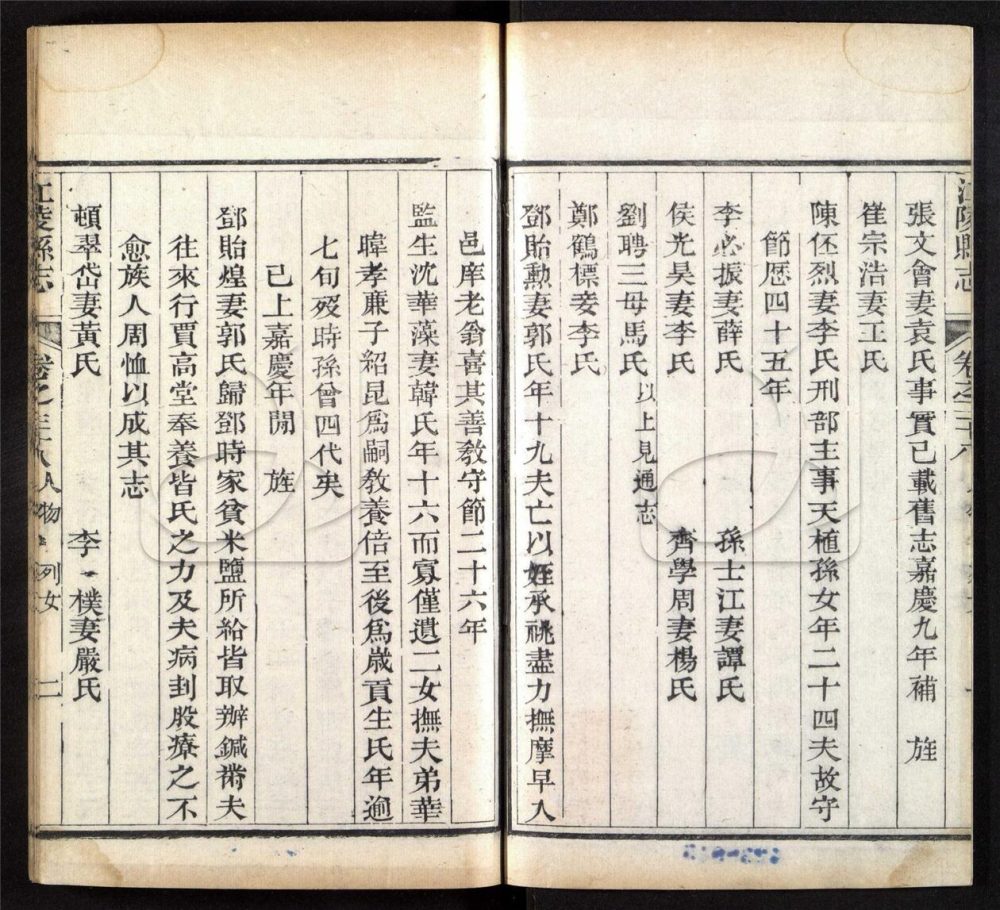 江陵縣志 卷之三十八
張文會妻袁氏事實已載舊志嘉慶九年補 旌
崔宗浩妻王氏
陳伾烈妻李氏刑部主事天植孫女年二十四夫故守
節歷四十五年
李必振妻薛氏 孫士江妻譚氏
侯光昊妻李氏 齊學周妻楊氏
劉聘三母馬氏以上見通志
鄭鶴標妾李氏
鄧貽勲妻郭氏年十九夫亡以姪承祧盡力撫摩早入
邑庠老翁喜其善教守節二十六年
監生沈華藻妻韓氏年十六而寡僅遺二女撫夫弟華
暐孝廉子紹昆爲嗣教養倍至後爲歲貢生氏年逾
七旬歿時孫曾四代矣
已上嘉慶年閒 旌
鄧貽煌妻郭氏歸鄧時家貧米鹽所給皆取辦鍼黹夫
往來行賈高堂奉養皆氏之力及夫病刲股療之不
愈族人周恤以成其志
頓翠岱妻黃氏 李樸妻嚴氏
江陵縣志 卷之三十八 人物 列女 二